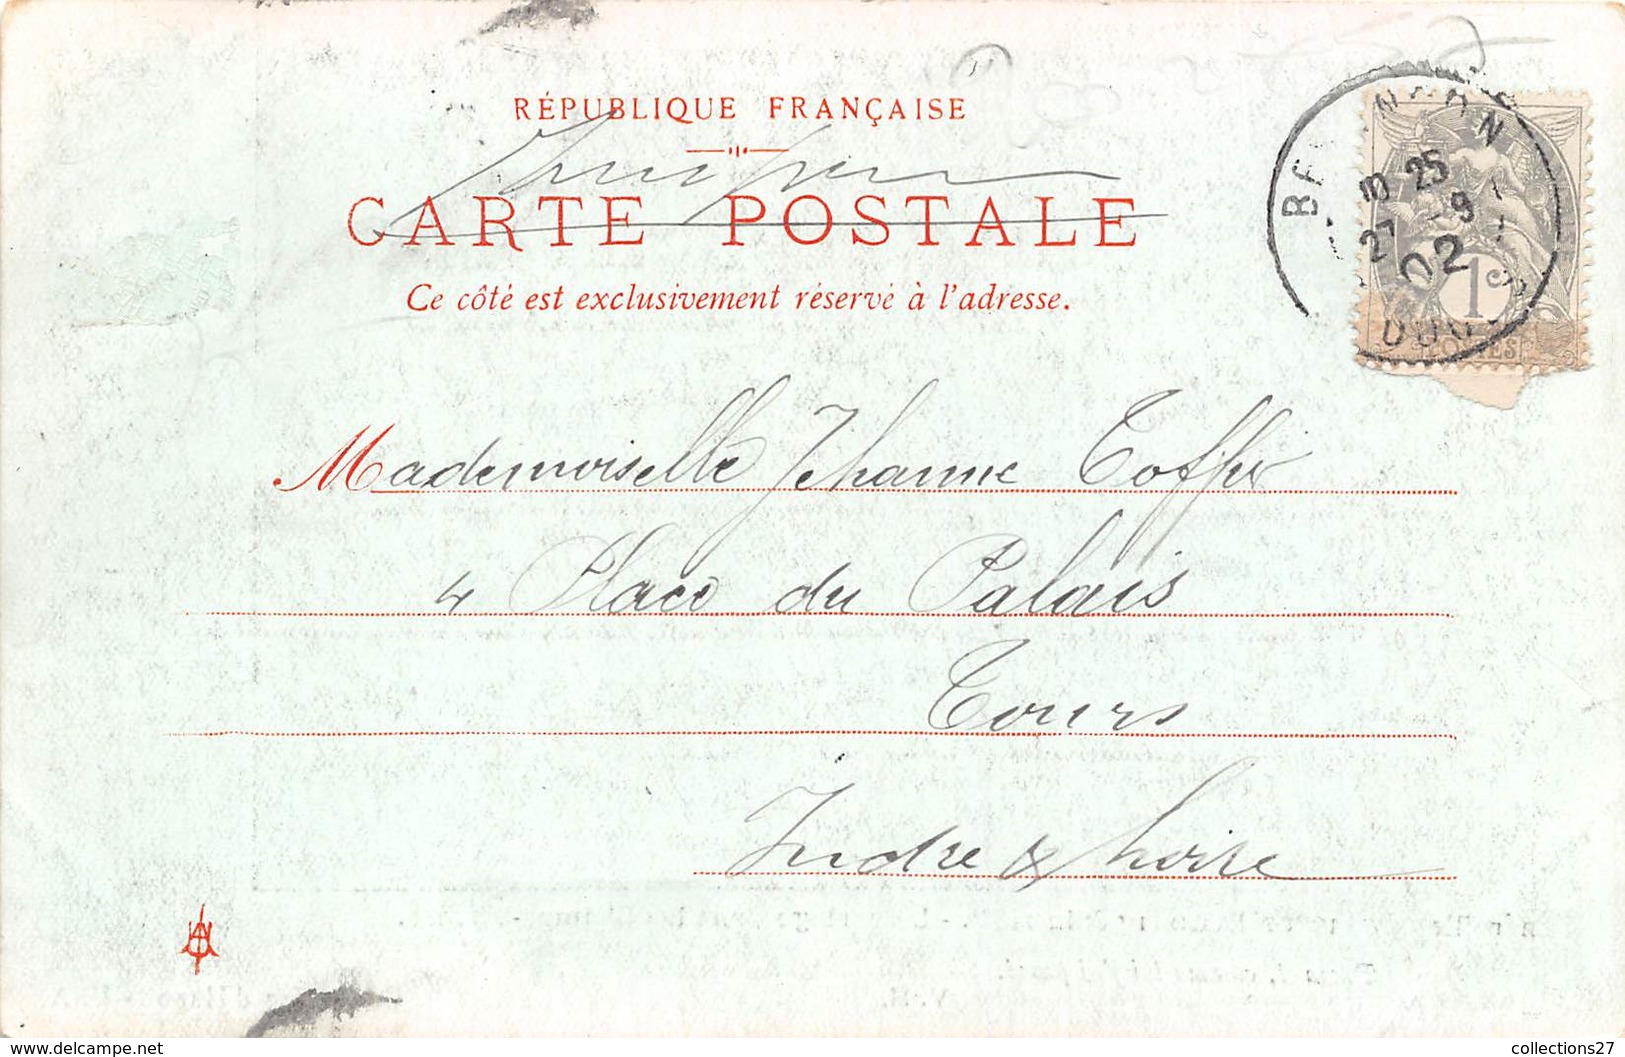 RÉPUBLIQUE FRANÇAISE
CARTE POSTALE
Ce côté est exclusivement réservé à l'adresse.
10 25
27 -9
02
DOUBS
1c
POSTES
Mademoiselle Jehanne
4 Place du Palais
Tours
Indre & Loire
www.delcampe.net
collections27